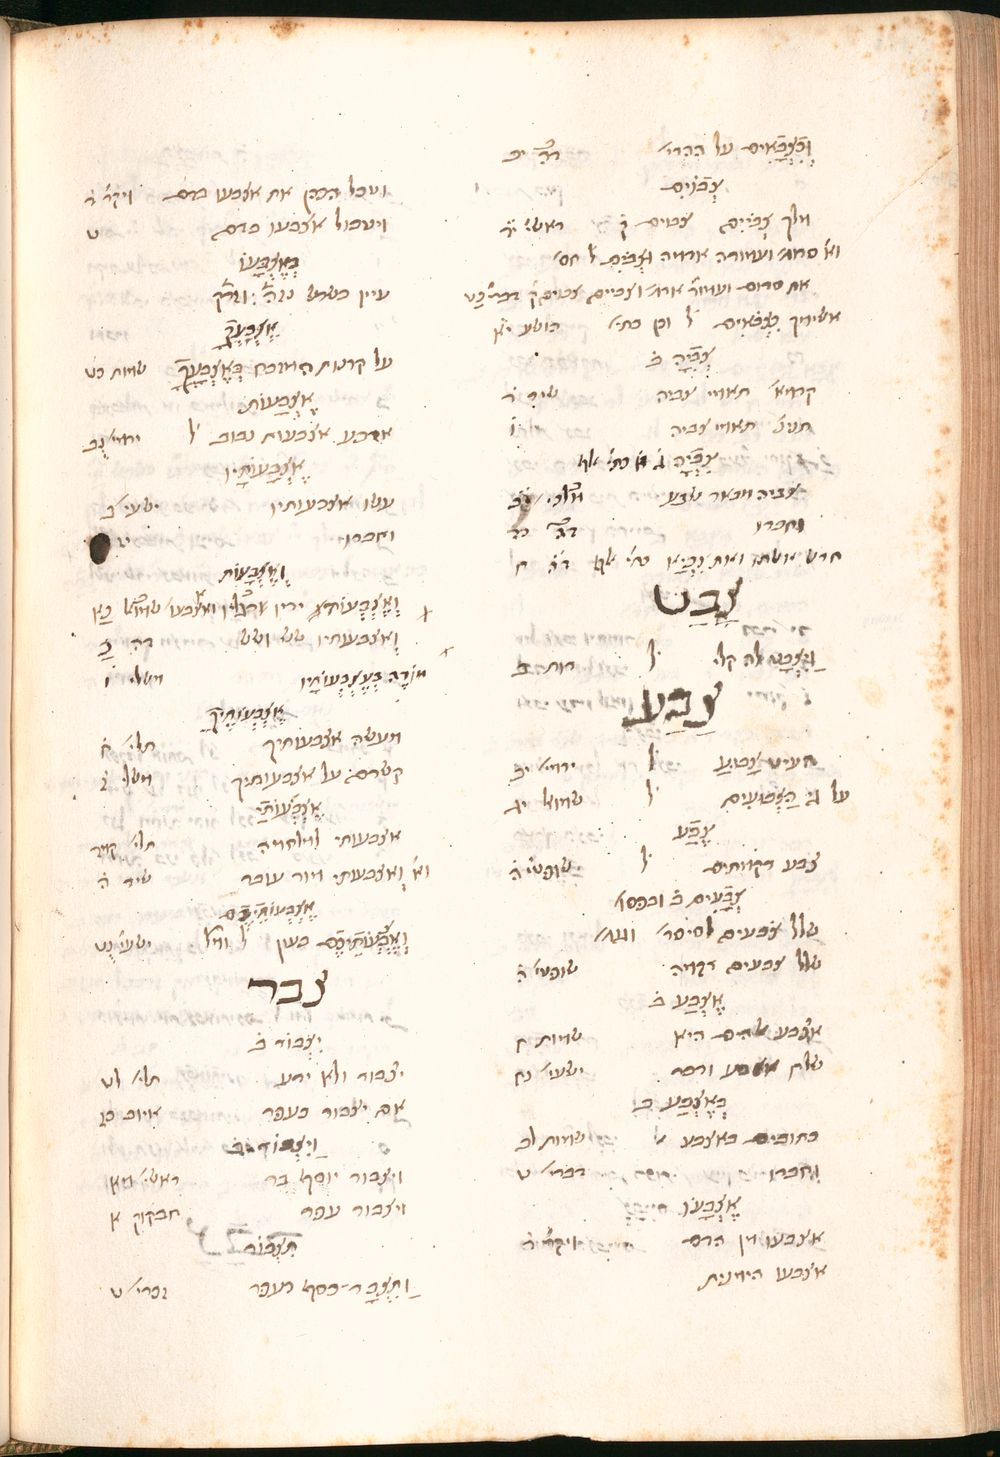 וְכִצְבָאִים על ההרי׳ דה יב
צְבֹיִם
מלך צְבֹיִים צבוים ק׳ ראשי׳ יד
את סדום ועמור׳ אדמ׳ וצביים צבוים ק׳ דברי׳ כט
הושע יא
צְבִיָּה ב׳
תאומי צביה שיר ד׳
תאומי צביה
צִבְיָה
צביה מבאר שבע מלכי׳ יב
וחברו דה כד
חדש אשתו ואת צִבְיָא כתי׳ אלף דה ח
צָבַט
וַיִּצְבָּט לה קלי ל׳ רות ב
צָבַע
העיט צָבוּעַ ל׳ ירמי׳ יב
על גי הַצְּבוֹעִים ל׳ שמואל יג
צֶבַע
צבע רקמתים ל׳ שופטי׳ ה
צְבָעִים ב׳ ובפסו׳
שלל צבעים לסיסר׳
שלל צבעים רקמה שופטי׳ ה
אֶצְבַּע ב׳
אצבע אלהים היא שמות ח
שלח אצבע ודבר ישעי׳ נח
בְּאֶצְבַּע ב׳
כתובים באצבע שמות לא
וחברו דברי׳ ט
אֶצְבָּעוֹ
אצבעו מן הדם ויקר׳ ד
אצבעו הימנית
וטבל הכהן את אצבעו בדם ויקר׳ ד
ויטבול אצבעו בדם ט
בְּאֶצְבָּעוֹ
עיין בשרש נזה וזרק
אֶצְבָּעֶךָ
על קרנות המזבח בְּאֶצְבָּעֶךָ שמות כט
אֶצְבָּעוֹת
ארבע אצבעות נבוב ל׳ ירמי׳ נב
אֶצְבְּעוֹתָיו
עשו אצבעותיו ישעי׳ ב
וחברו
וְאֶצְבָּעוֹת
וְאֶצְבְּעוֹת ידיו רגליו ואצבע׳ שמואל כא
וְאצבעתיו שש ושש דה כ
מוֹרֶה בְּאֶצְבְּעוֹתָיו משלי ו
אֶצְבְּעוֹתֶיךָ
מעשה אצבעותיך תלי׳ ח
קשרם על אצבעותיך משלי ז
אֶצְבְּעוֹתַי
אצבעותי למלחמה תלי׳ קמד
ואצבעתי מור עובר שיר ה
אֶצְבְּעוֹתֵיכֶם
וְאֶצְבְּעוֹתֵיכֶם בעון ל׳ ישעי׳ נט
צבר
יִצְבּוֹר ב׳
יצבור ולא ידע תלי׳ לט
אם יצבור כעפר איוב כז
וַיִּצְבּוֹר ב׳
ויצבור יוסף בר ראשי׳ מא
ויצבור עפר חבקוק א
תִּצְבּוֹר
וַתִּצְבָּר־כסף כעפר זכרי׳ ט